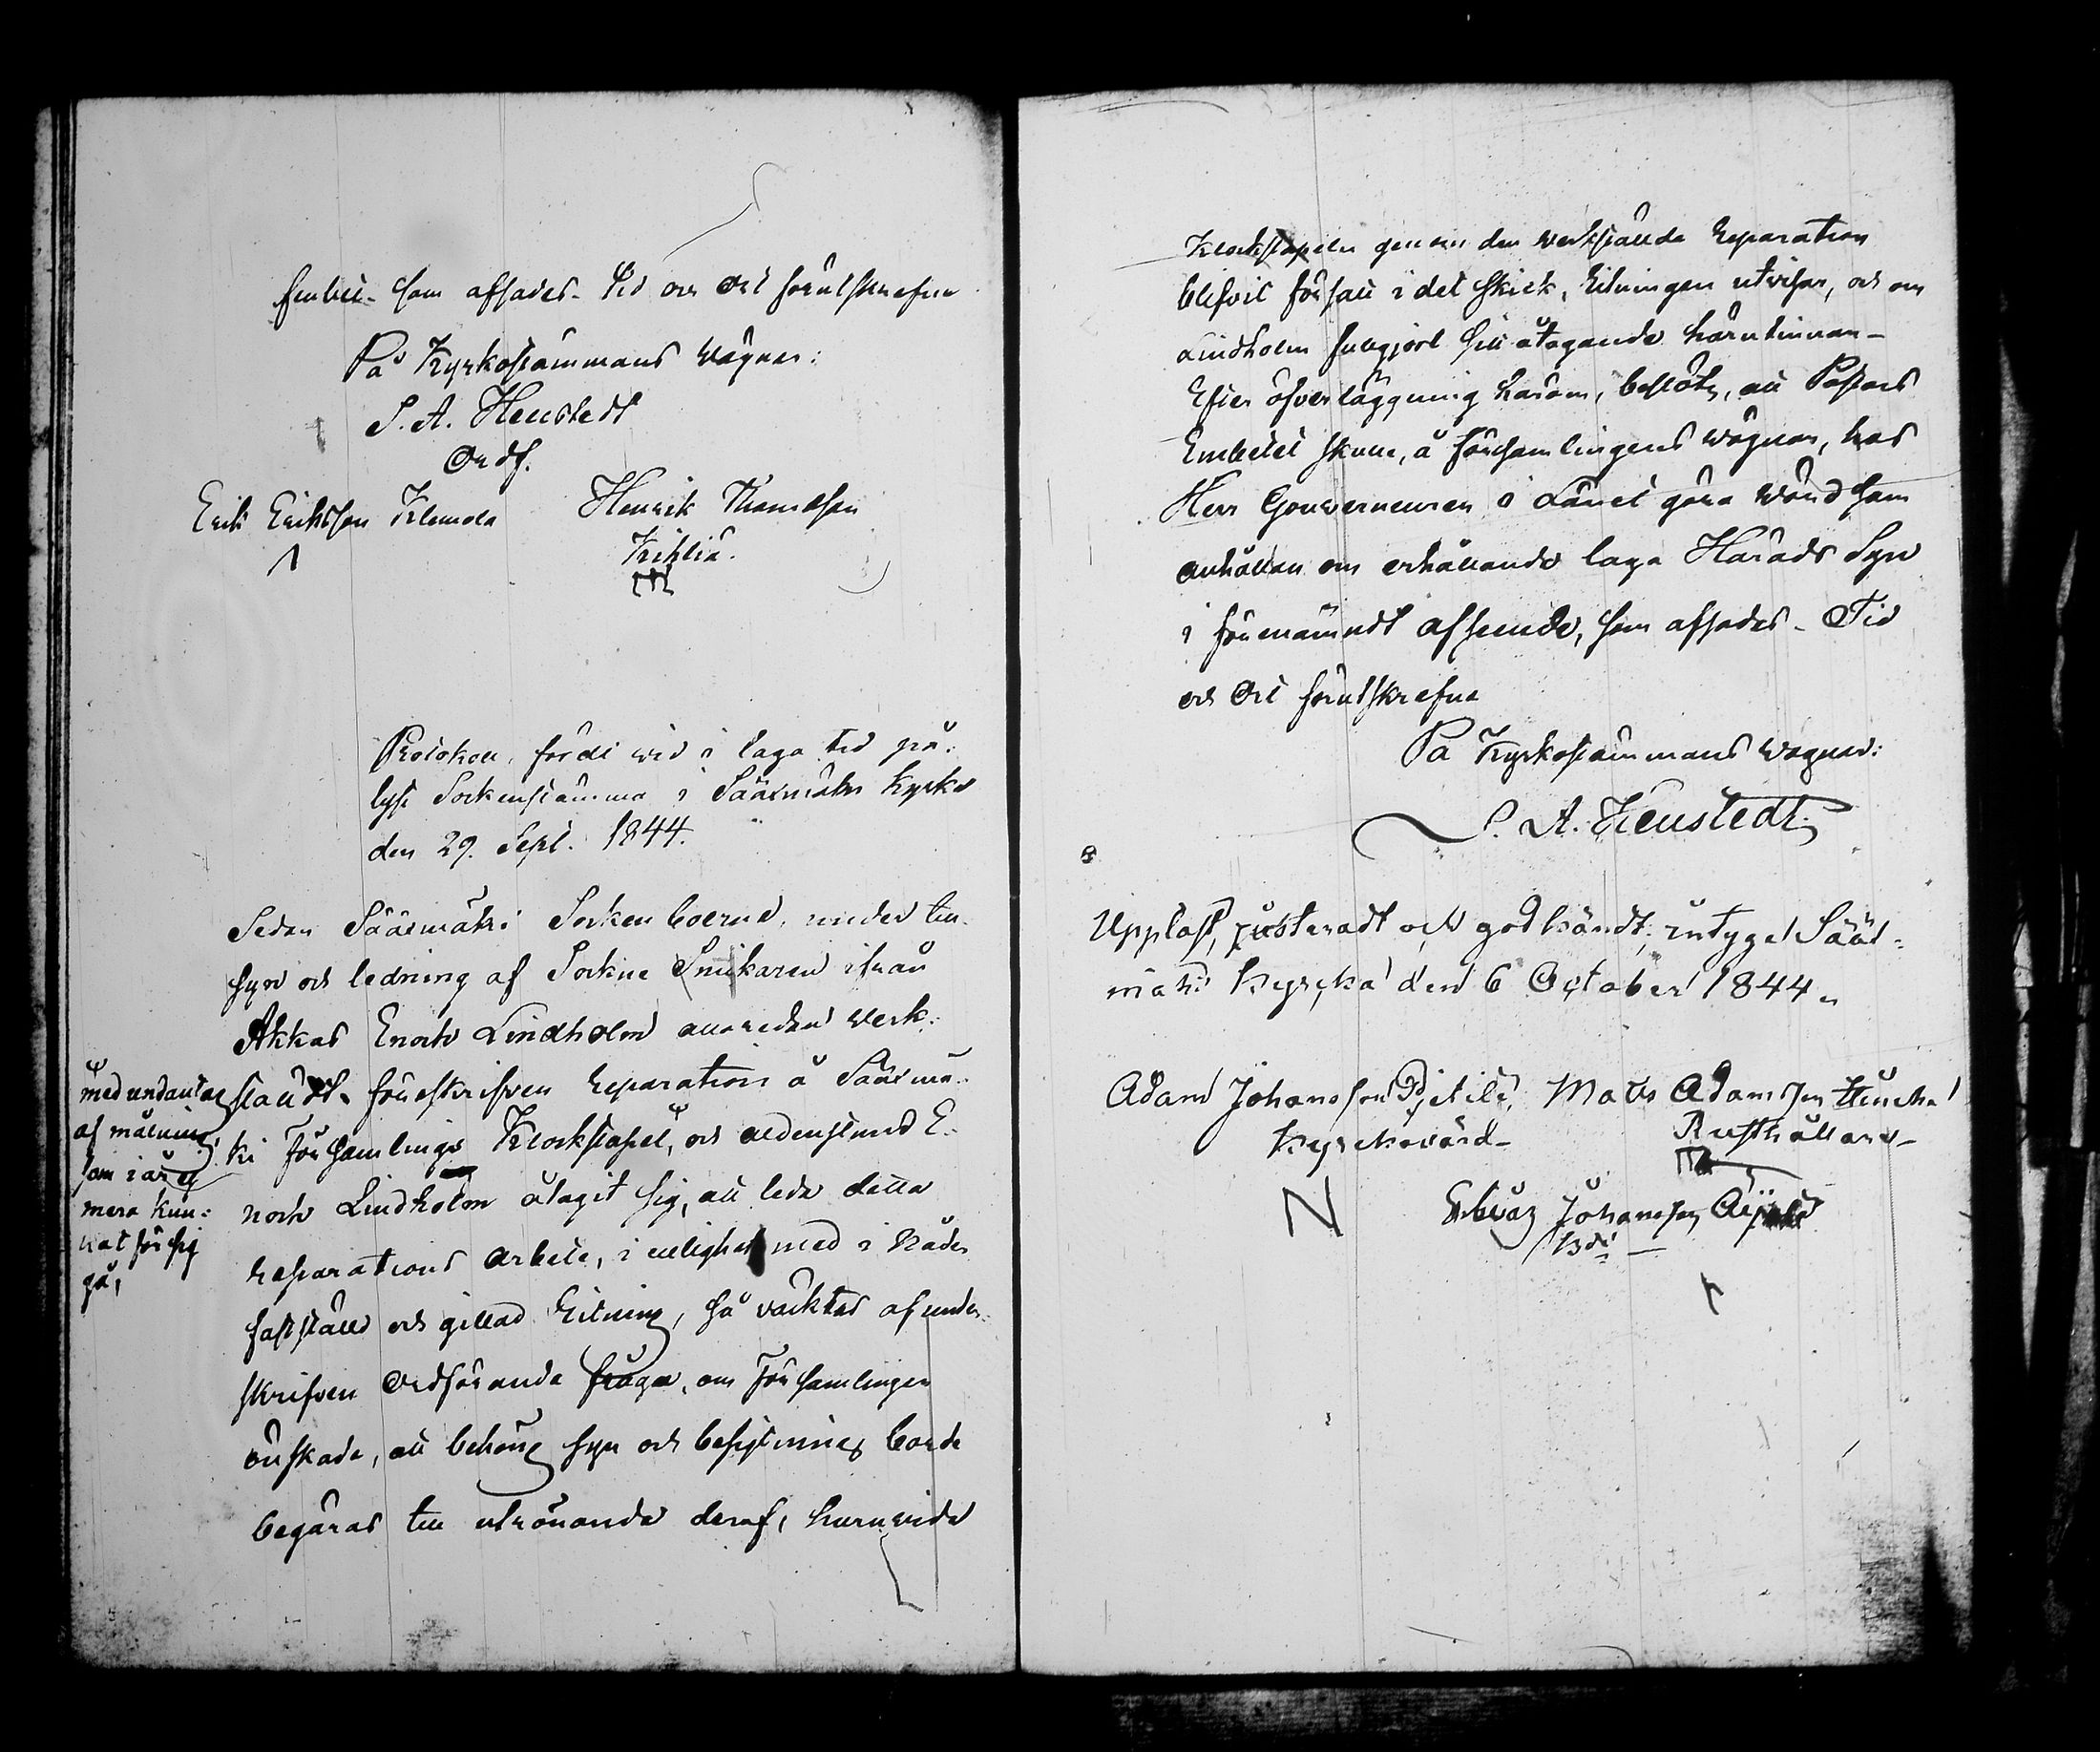 som afsades. Tid och Ort förutskrefne
På Kyrkostämmans vägnar:
S. A. Heustedt
Ordf.
Erik Eriksson Klemola Henrik Thomasson
Krikliä.
Protokoll, fördt wid i laga tid på-
lyst Sockenstämma i Sääxmäki Kyrka
den 29. Sept. 1844.
Sedan Sääxmäki Sockenboerne, under till-
syn och ledning af Sockne Snickaren ifrån
Akkas Enoch Lindholm allaredan verk-
ställdt föreskrifven Reparation å Sääxmä-
ki Församlings Klockstapel, och aldenstund E-
noch Lindholm åtagit sig, att leda detta
reparations arbete, i enlighet med i Nåder
fastställd och gillad Ritning, såväcktes af under-
skrifven Ordförande fråga, om Församlingen
önskade, att behörig syn och besigtning borde
begäras till utrönande deraf, huruvida
med undantag
af målning,
som i år ej
mera kun-
nat för sig
gå,
Klockstapeln genom den verkstälda Reparation
blifvit försatt i det skick, Ritningen utvisar, och om
Lindholm fullgjort sitt åtagande härutinnan.
Efter öfverläggning härom, beslöts, att Pastors
Embetet skulle, å Församlingens vägnar, hos
Herr Gouverneuren i Länet göra vördsam
anhållan om erhållande laga Härads Syn
i förenämndt afseende, som afsades. Tid
och Ort förutskrefne
På Kyrkostämmans vägnar:
S. A. Heustedt.
Uppläst, justeradt och godkändt, intygal Sääx-
mäki Kyrcka den 6 October 1844.
Adam Johansson Mats Adamsson
Kyrckovärd Rusthållare
N Johansson